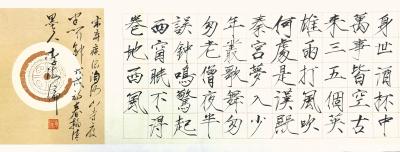 身世酒杯中
萬事皆空古
来三五個英
雄雨打風吹
何處是漢殿
秦宮夢入少
年叢歌舞匆
匆老僧夜半
誤鐘鳴驚起
西窗眠不得
卷地西風
宋辛棄疾浪淘沙山寺夜
半聞鐘戊戌春
墨人李